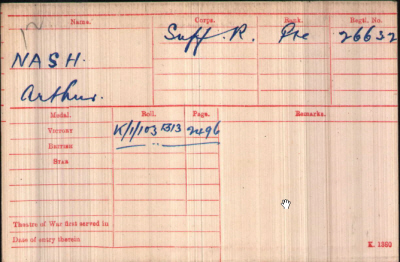 Name. Corps. Rank. Regtl. No.
NASH. Suff. R. Pte 26632
Arthur.
Medal. Roll. Page. Remarks.
VICTORY K/1/103 B13 2496
BRITISH
STAR
Theatre of War first served in
Date of entry therein
K. 1380